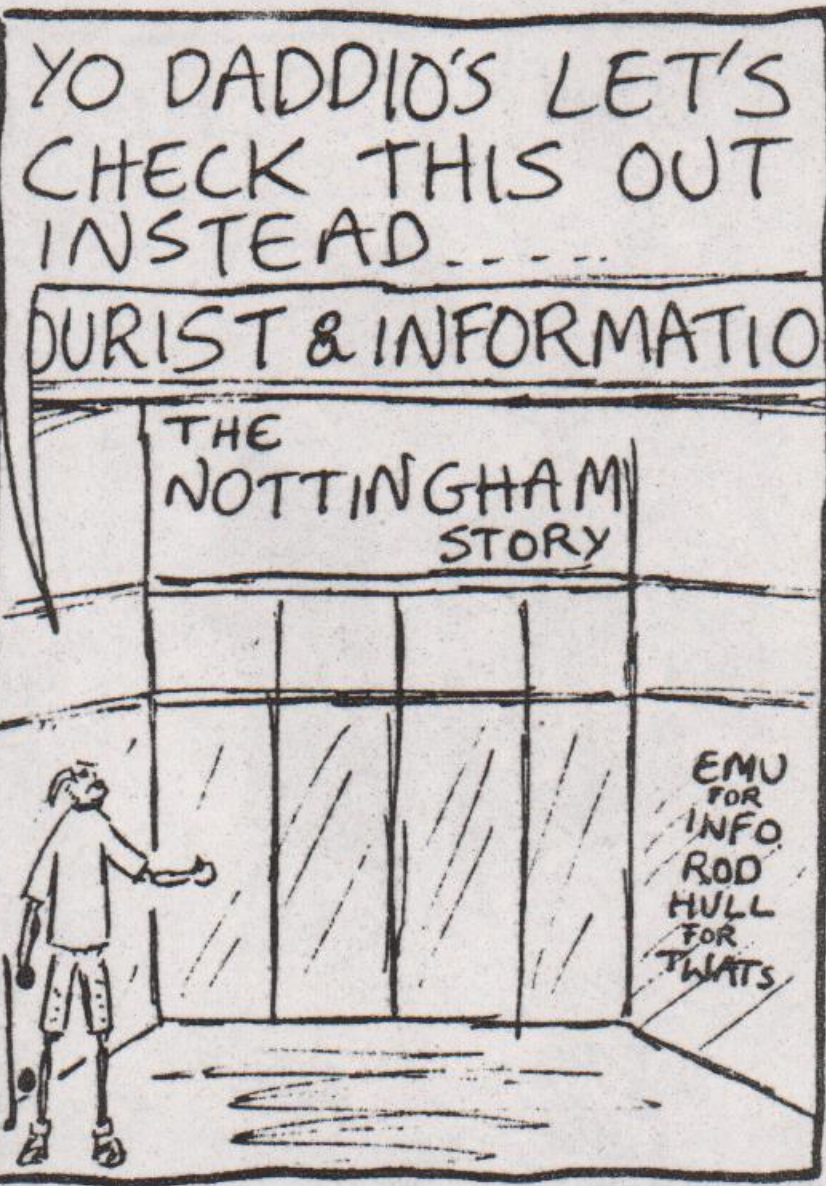 YO DADDIO'S LET'S
CHECK THIS OUT
INSTEAD......
OURIST & INFORMATIO
THE
NOTTINGHAM
STORY
EMU
FOR
INFO
ROD
HULL
FOR
TWATS